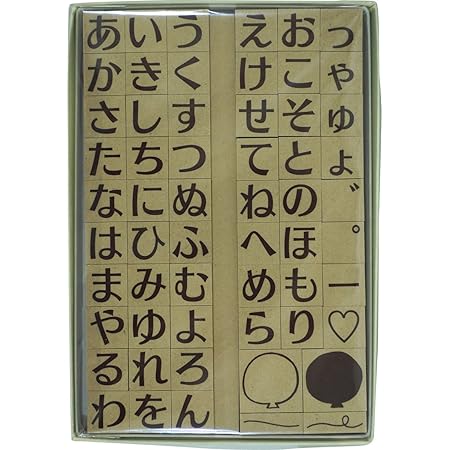 あいう えおっ
かきく けこゃ
さしす せそゅ
たちつ てとょ
なにぬ ねの゛
はひふ へほ。
まみむ めもー
やゆよ らり♡
るれろ
わをん